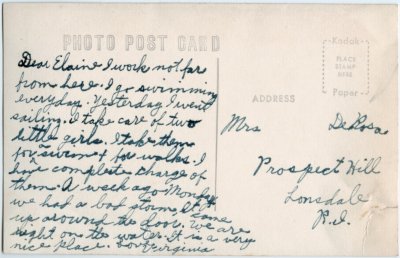 PHOTO POST CARD
Kodak
PLACE
STAMP
HERE
Paper
Dear Elaine I work not far
from here. I go swimming
everyday. Yesterday I went
sailing. I take care of two
little girls. I take them
for a swim & for walks. I
have complete charge of
them. A week ago Monday
we had a bad storm. It came
up around the door. We are
right on the water. It is a very
nice place. Love Virginia
ADDRESS
Mrs DeRosa
Prospect Hill
Lonsdale
R.I.